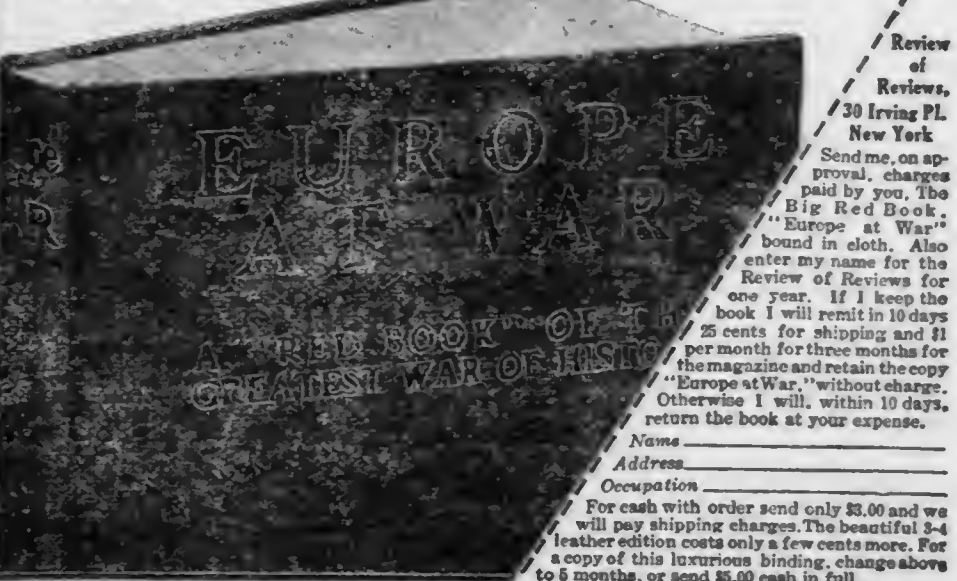 re
R
EUROPE
AT WAR
A "RED BOOK" OF TH
GREATEST WAR OF HISTO
Review
of
Reviews,
30 Irving Pl.
New York
Send me, on ap-
proval, charges
paid by you, The
Big Red Book,
"Europe at War"
bound in cloth. Also
enter my name for the
Review of Reviews for
one year. If I keep the
book I will remit in 10 days
25 cents for shipping and $1
per month for three months for
the magazine and retain the copy
"Europe at War," without charge.
Otherwise I will, within 10 days,
return the book at your expense.
Name
Address
Occupation
For cash with order send only $3.00 and we
will pay shipping charges. The beautiful 3-4
leather edition costs only a few cents more. For
a copy of this luxurious binding, change above
to 5 months, or send $5.00 cash in full.